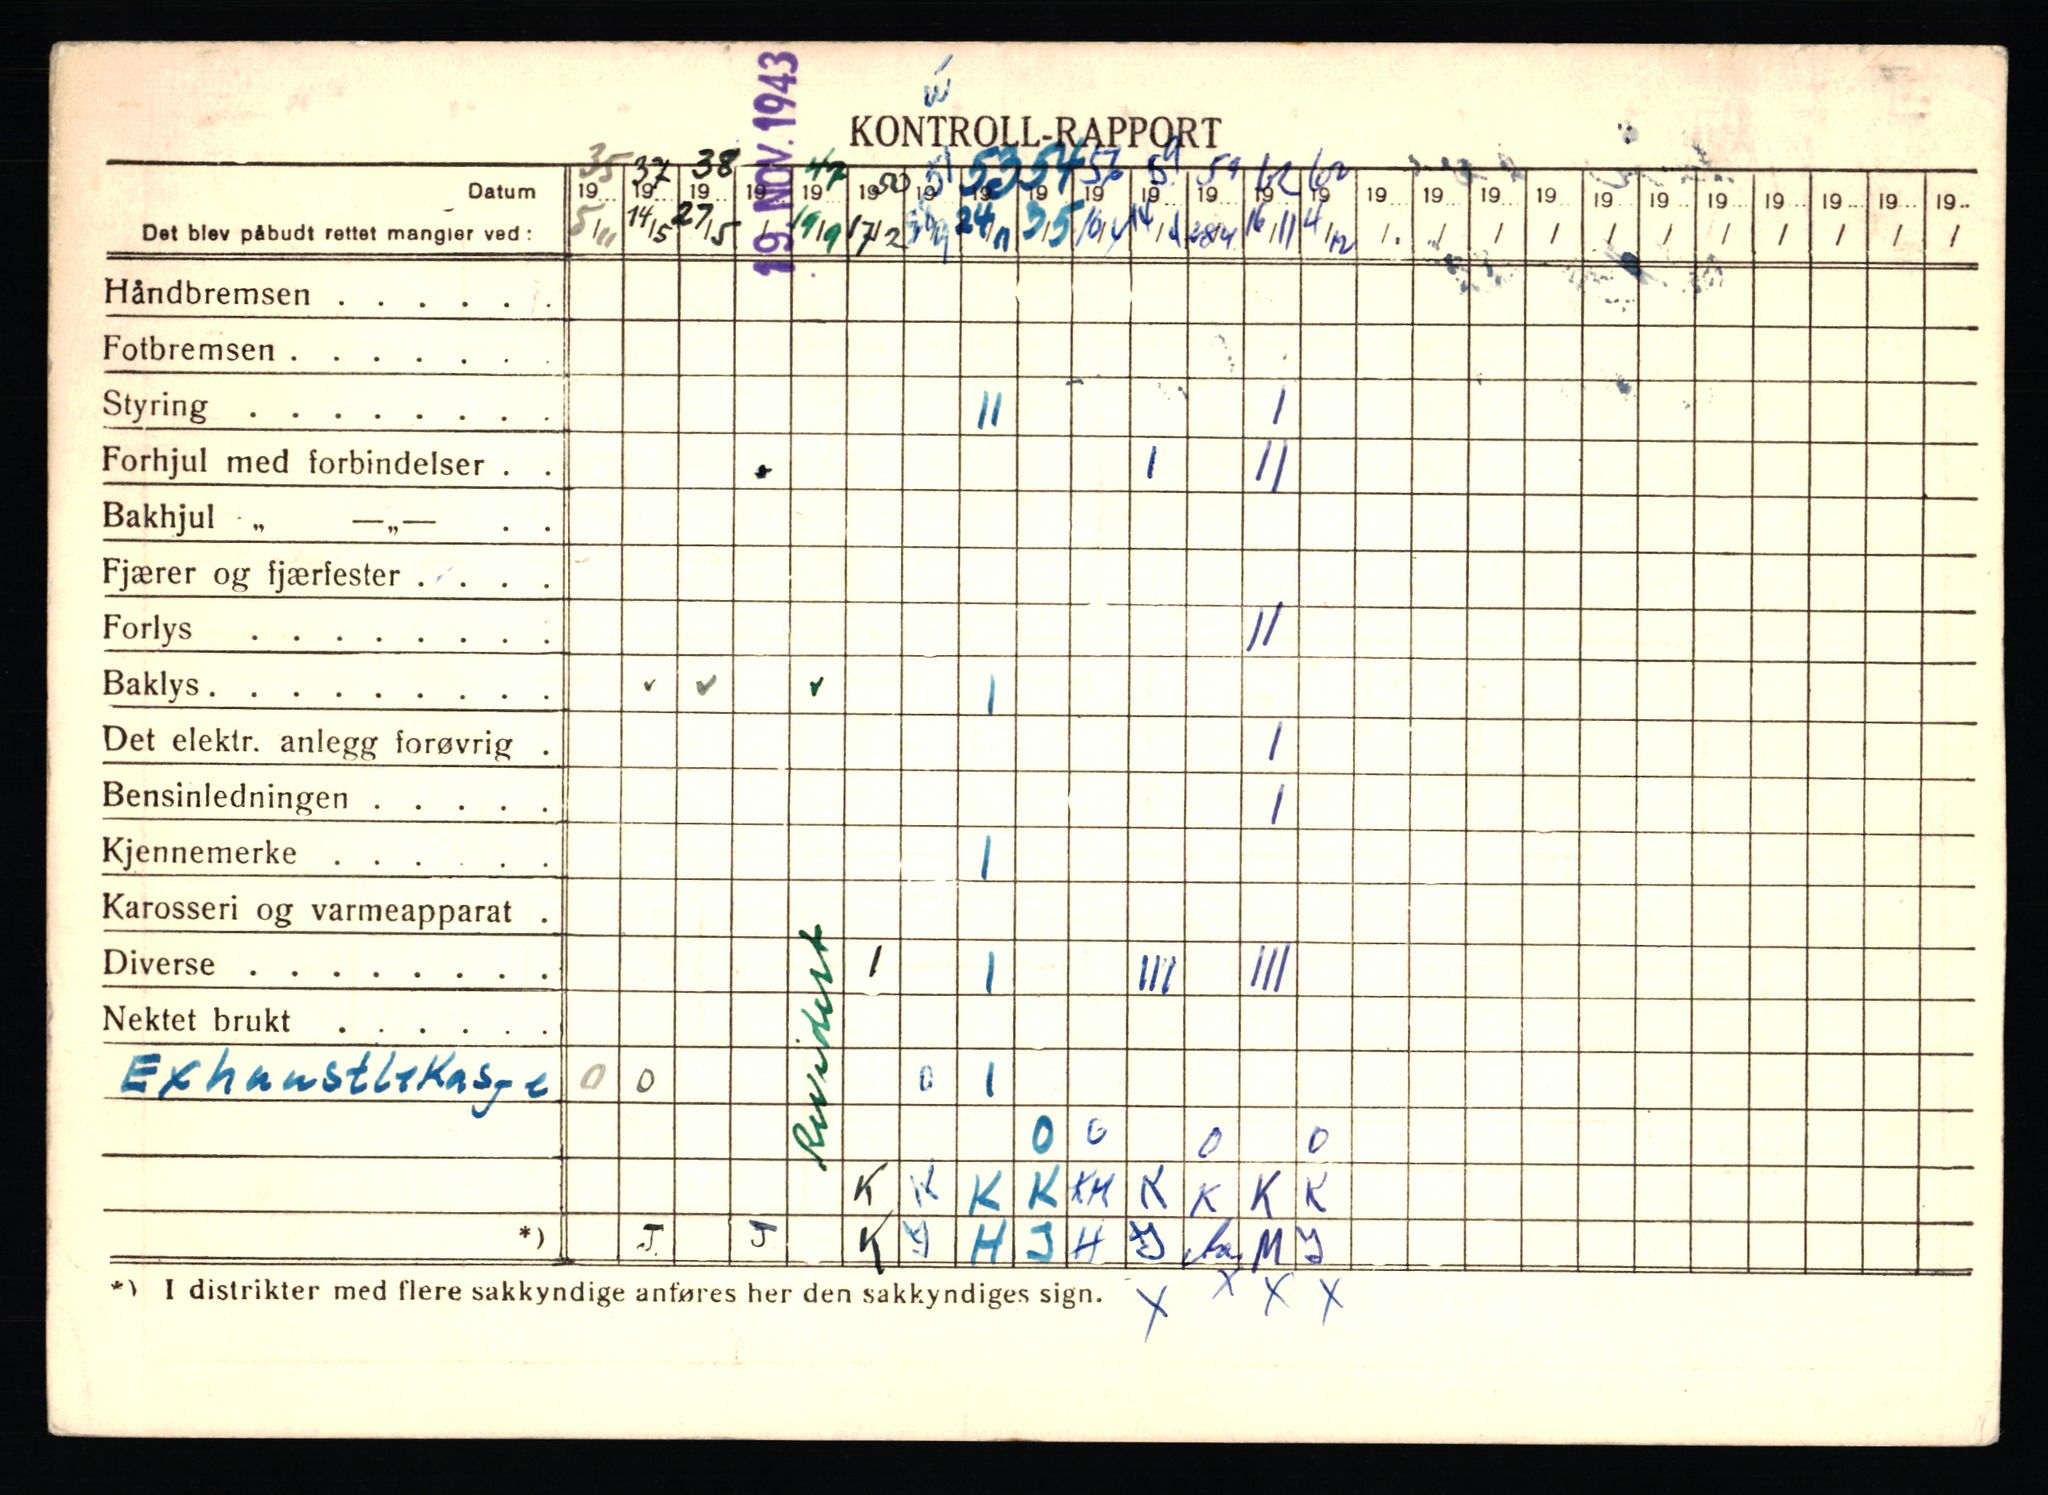 19 NOV. 1943
KONTROLL-RAPPORT
35 37 38 47 50 51 53 54 56 59 59 62 62
Datum 19 19 19 19 19 19 19 19 19 19 19 19 19 19 19 19 19 19 19 19 19 19 19 19 19
Det blev påbudt rettet mangler ved: 5/11 14/5 27/5 / 19/9 17/2 24/11 3/5 28/4 16/11 4/12 / / / / / / / / / / /
Håndbremsen . . . . . .
Fotbremsen . . . . . .
Styring . . . . . . . . II I
Forhjul med forbindelser . . I II
Bakhjul „ —„— . .
Fjærer og fjærfester . . . .
Forlys . . . . . . . . II
Baklys . . . . . . . . ✓ ✓ ✓ I
Det elektr. anlegg forøvrig . I
Bensinledningen . . . . . I
Kjennemerke . . . . . I
Karosseri og varmeapparat .
Diverse . . . . . . . . I I III III
Nektet brukt . . . . . .
Revidert
0 0 0 I
0 0 0 0
K K K K KH K K K K
*) J J K J H J H J M J
*) I distrikter med flere sakkyndige anføres her den sakkyndiges sign.
X X X X